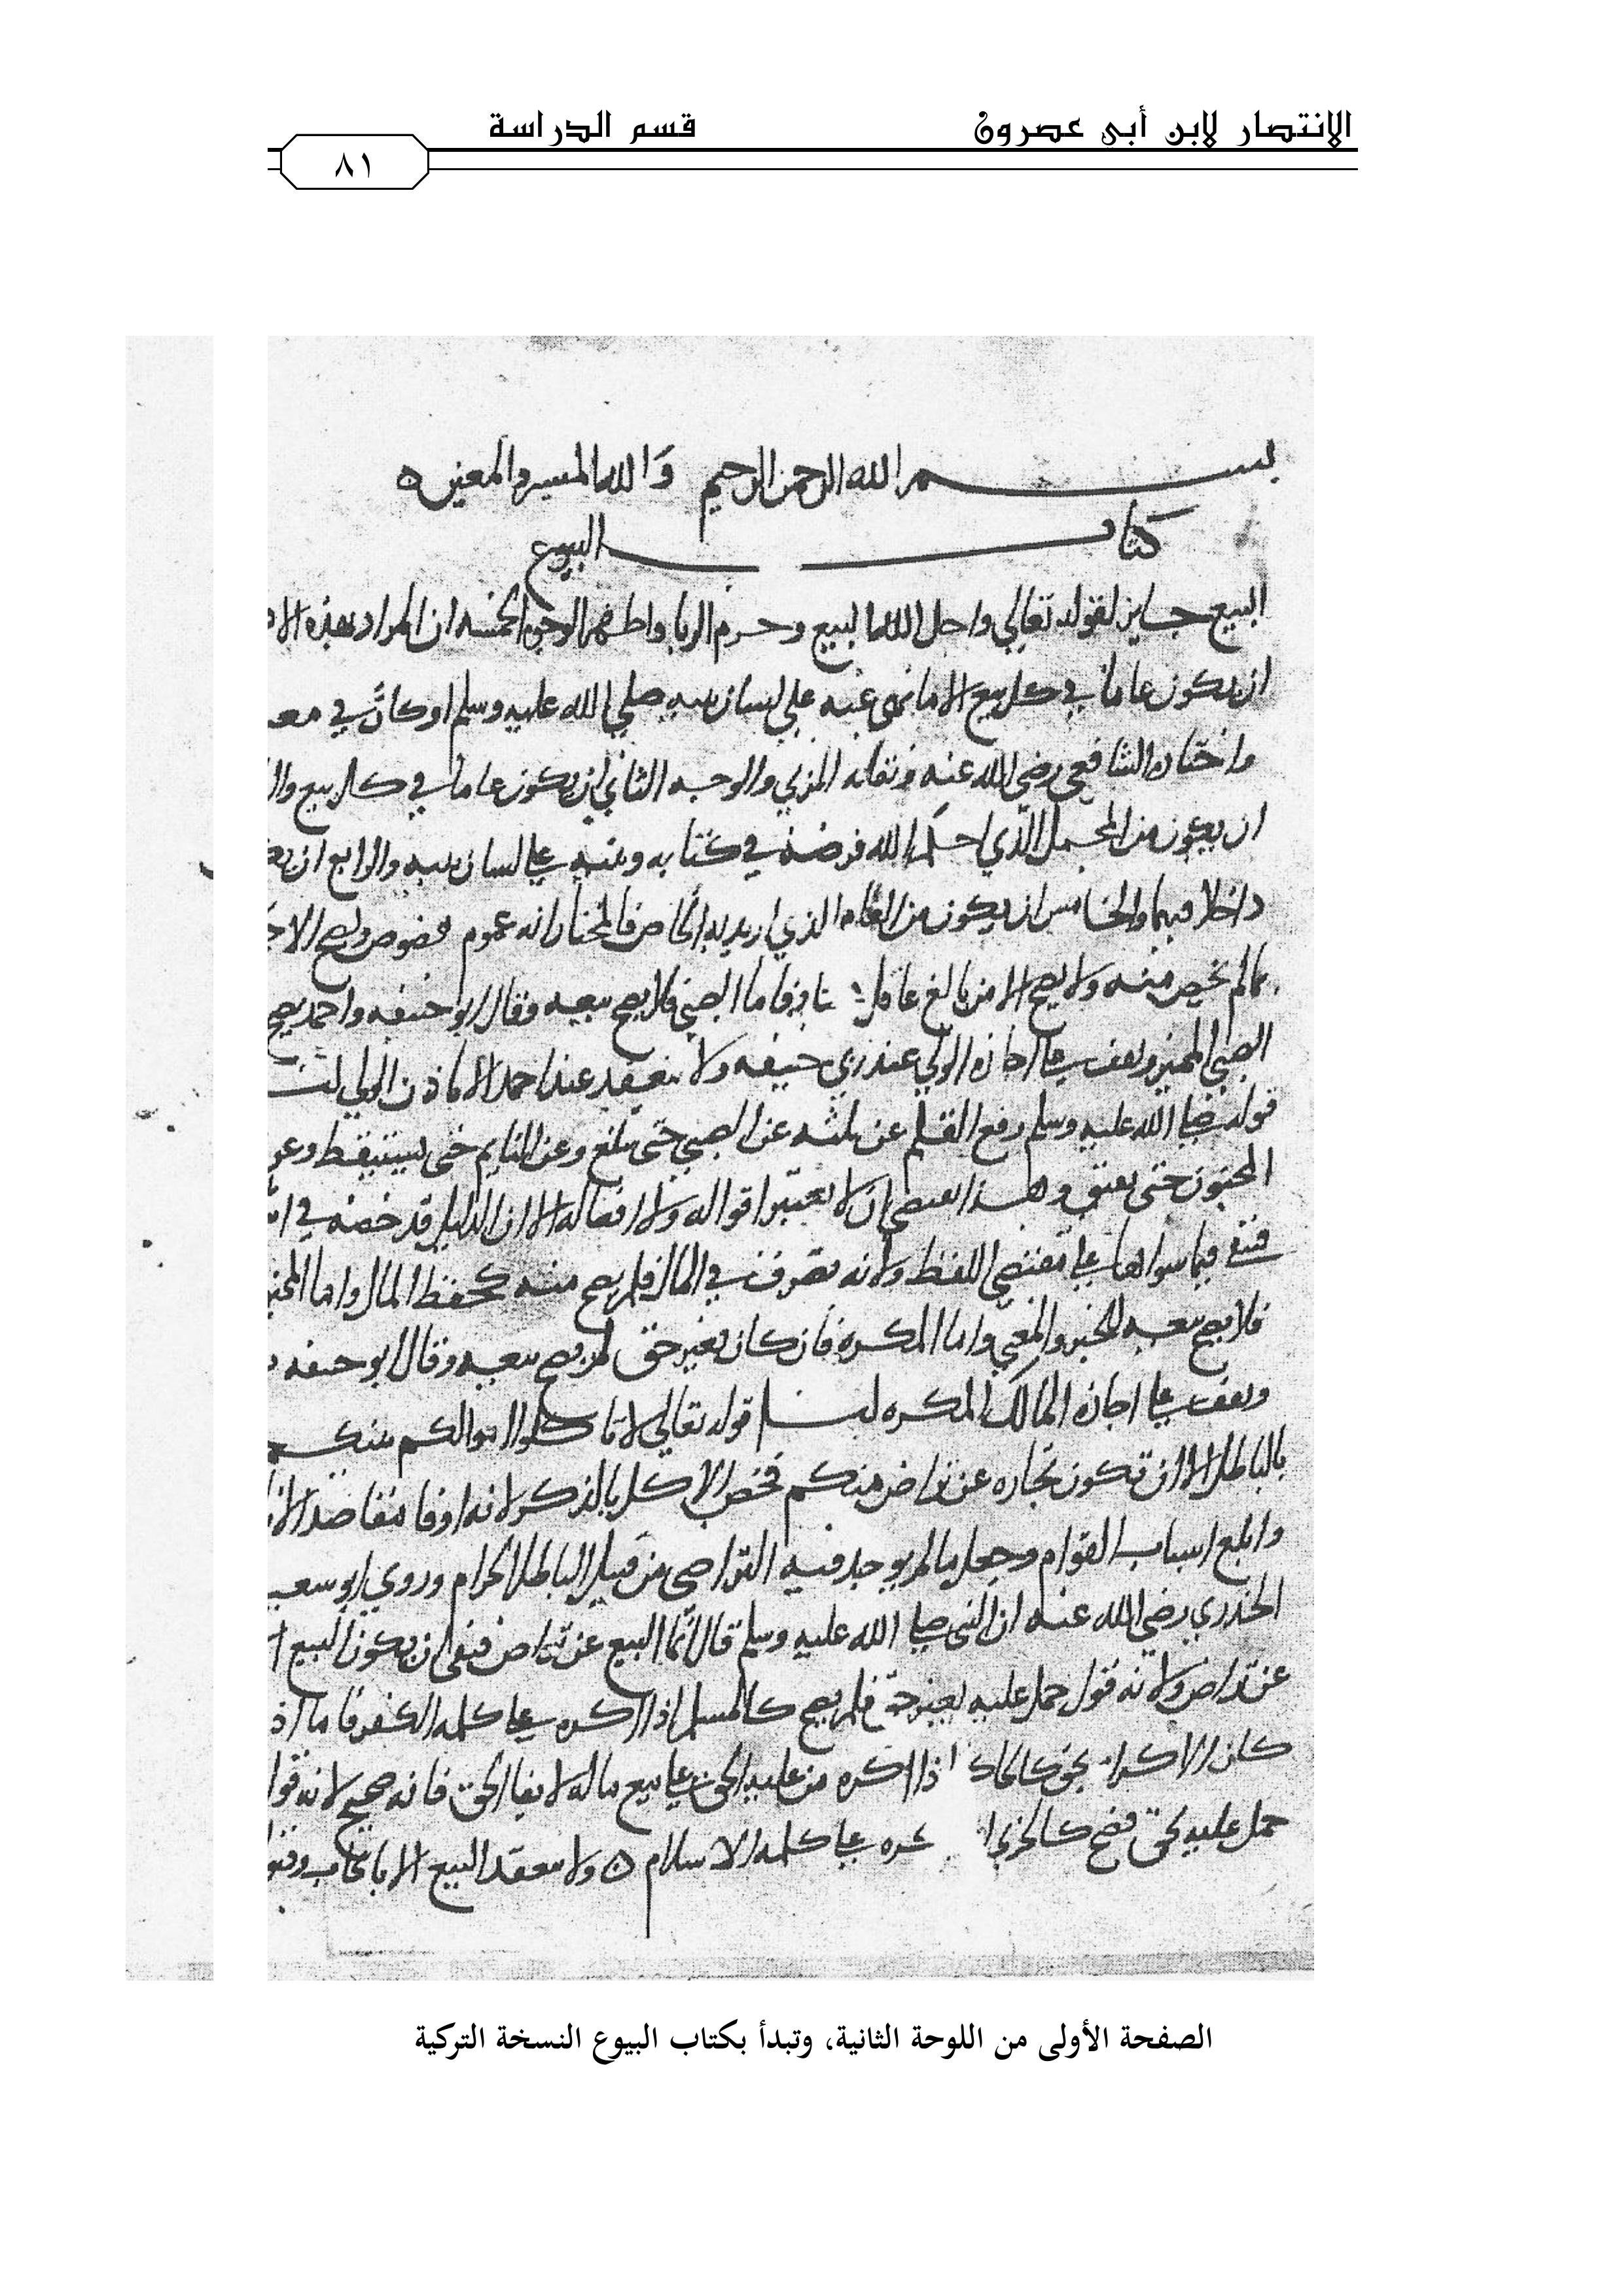 الانتصار لابن أبي عصرون قسم الدراسة
٨١
بسم الله الرحمن الرحيم والله الميسر والمعين
كتاب البيوع
البيع جايز لقوله تعالي واحل الله البيع وحرم الربا واظهر الوجوه الخمسه ان المراد بهذه
ان يكون عاما في كل بيع الا ما نهى عنه علي لسان نبيه صلي الله عليه وسلم او كان في
واختاره الشافعي رضي الله عنه ونقله المزني والوجه الثاني ان يكون عاما في كل بيع
ان يكون من المجمل الذي احكم الله فرضه في كتابه وبينه علي لسان نبيه والرابع ان
داخلا فيهما والخامس ان يكون من العام الذي اريد به الخاص فالمختار انه عموم مخصوص
ما لم يخص منه ولا يصح الا من بالغ عاقل فاما الصبي فلا يصح بيعه وقال ابو حنيفه واحمد يصح
الصبي المميز ويقف علي اجازه الولي عند ابي حنيفه ولا ينعقد عند احمد الا باذن الولي لنا
قوله صلي الله عليه وسلم رفع القلم عن ثلثه عن الصبي حتى يبلغ وعن النايم حتى يستيقظ وعن
المجنون حتى يفيق وهذا يقتضي ان لا يعتبر اقواله ولا افعاله الا ان الدليل قد خصه في
فبقي فيما سواها علي مقتضي اللفظ ولانه تصرف في المال فلم يصح منه كحفظ المال واما
فلا يصح بيعه للخبر والمعني واما المكره فان كان بغير حق لم يصح بيعه وقال ابو حنيفه
ويقف علي اجازه المالك المكره لنا قوله تعالي لا تاكلوا اموالكم بينكم
بالباطل الا ان تكون تجاره عن تراض منكم فخص الاكل بالذكر لانه اوفا مقاصد
وابلغ اسباب القوام وجعل ما لم يوجد فيه التراضي من قبيل الباطل الحرام وروي ابو سعيد
الخدري رضي الله عنه ان النبي صلي الله عليه وسلم قال انما البيع عن تراض فنفي ان يكون البيع
عن تراض ولانه قول حمل عليه بغير حق فلم يصح كالمسلم اذا اكره علي كلمه الكفر فاما
كان الاكراه بحق كالحاكم اذا اكره من عليه الحق علي بيع ماله لايفا الحق فانه صحيح لانه
حمل عليه بحق فصح كالحربي كره علي كلمه الاسلام ولا ينعقد البيع الا بالايجاب
الصفحة الأولى من اللوحة الثانية، وتبدأ بكتاب البيوع النسخة التركية